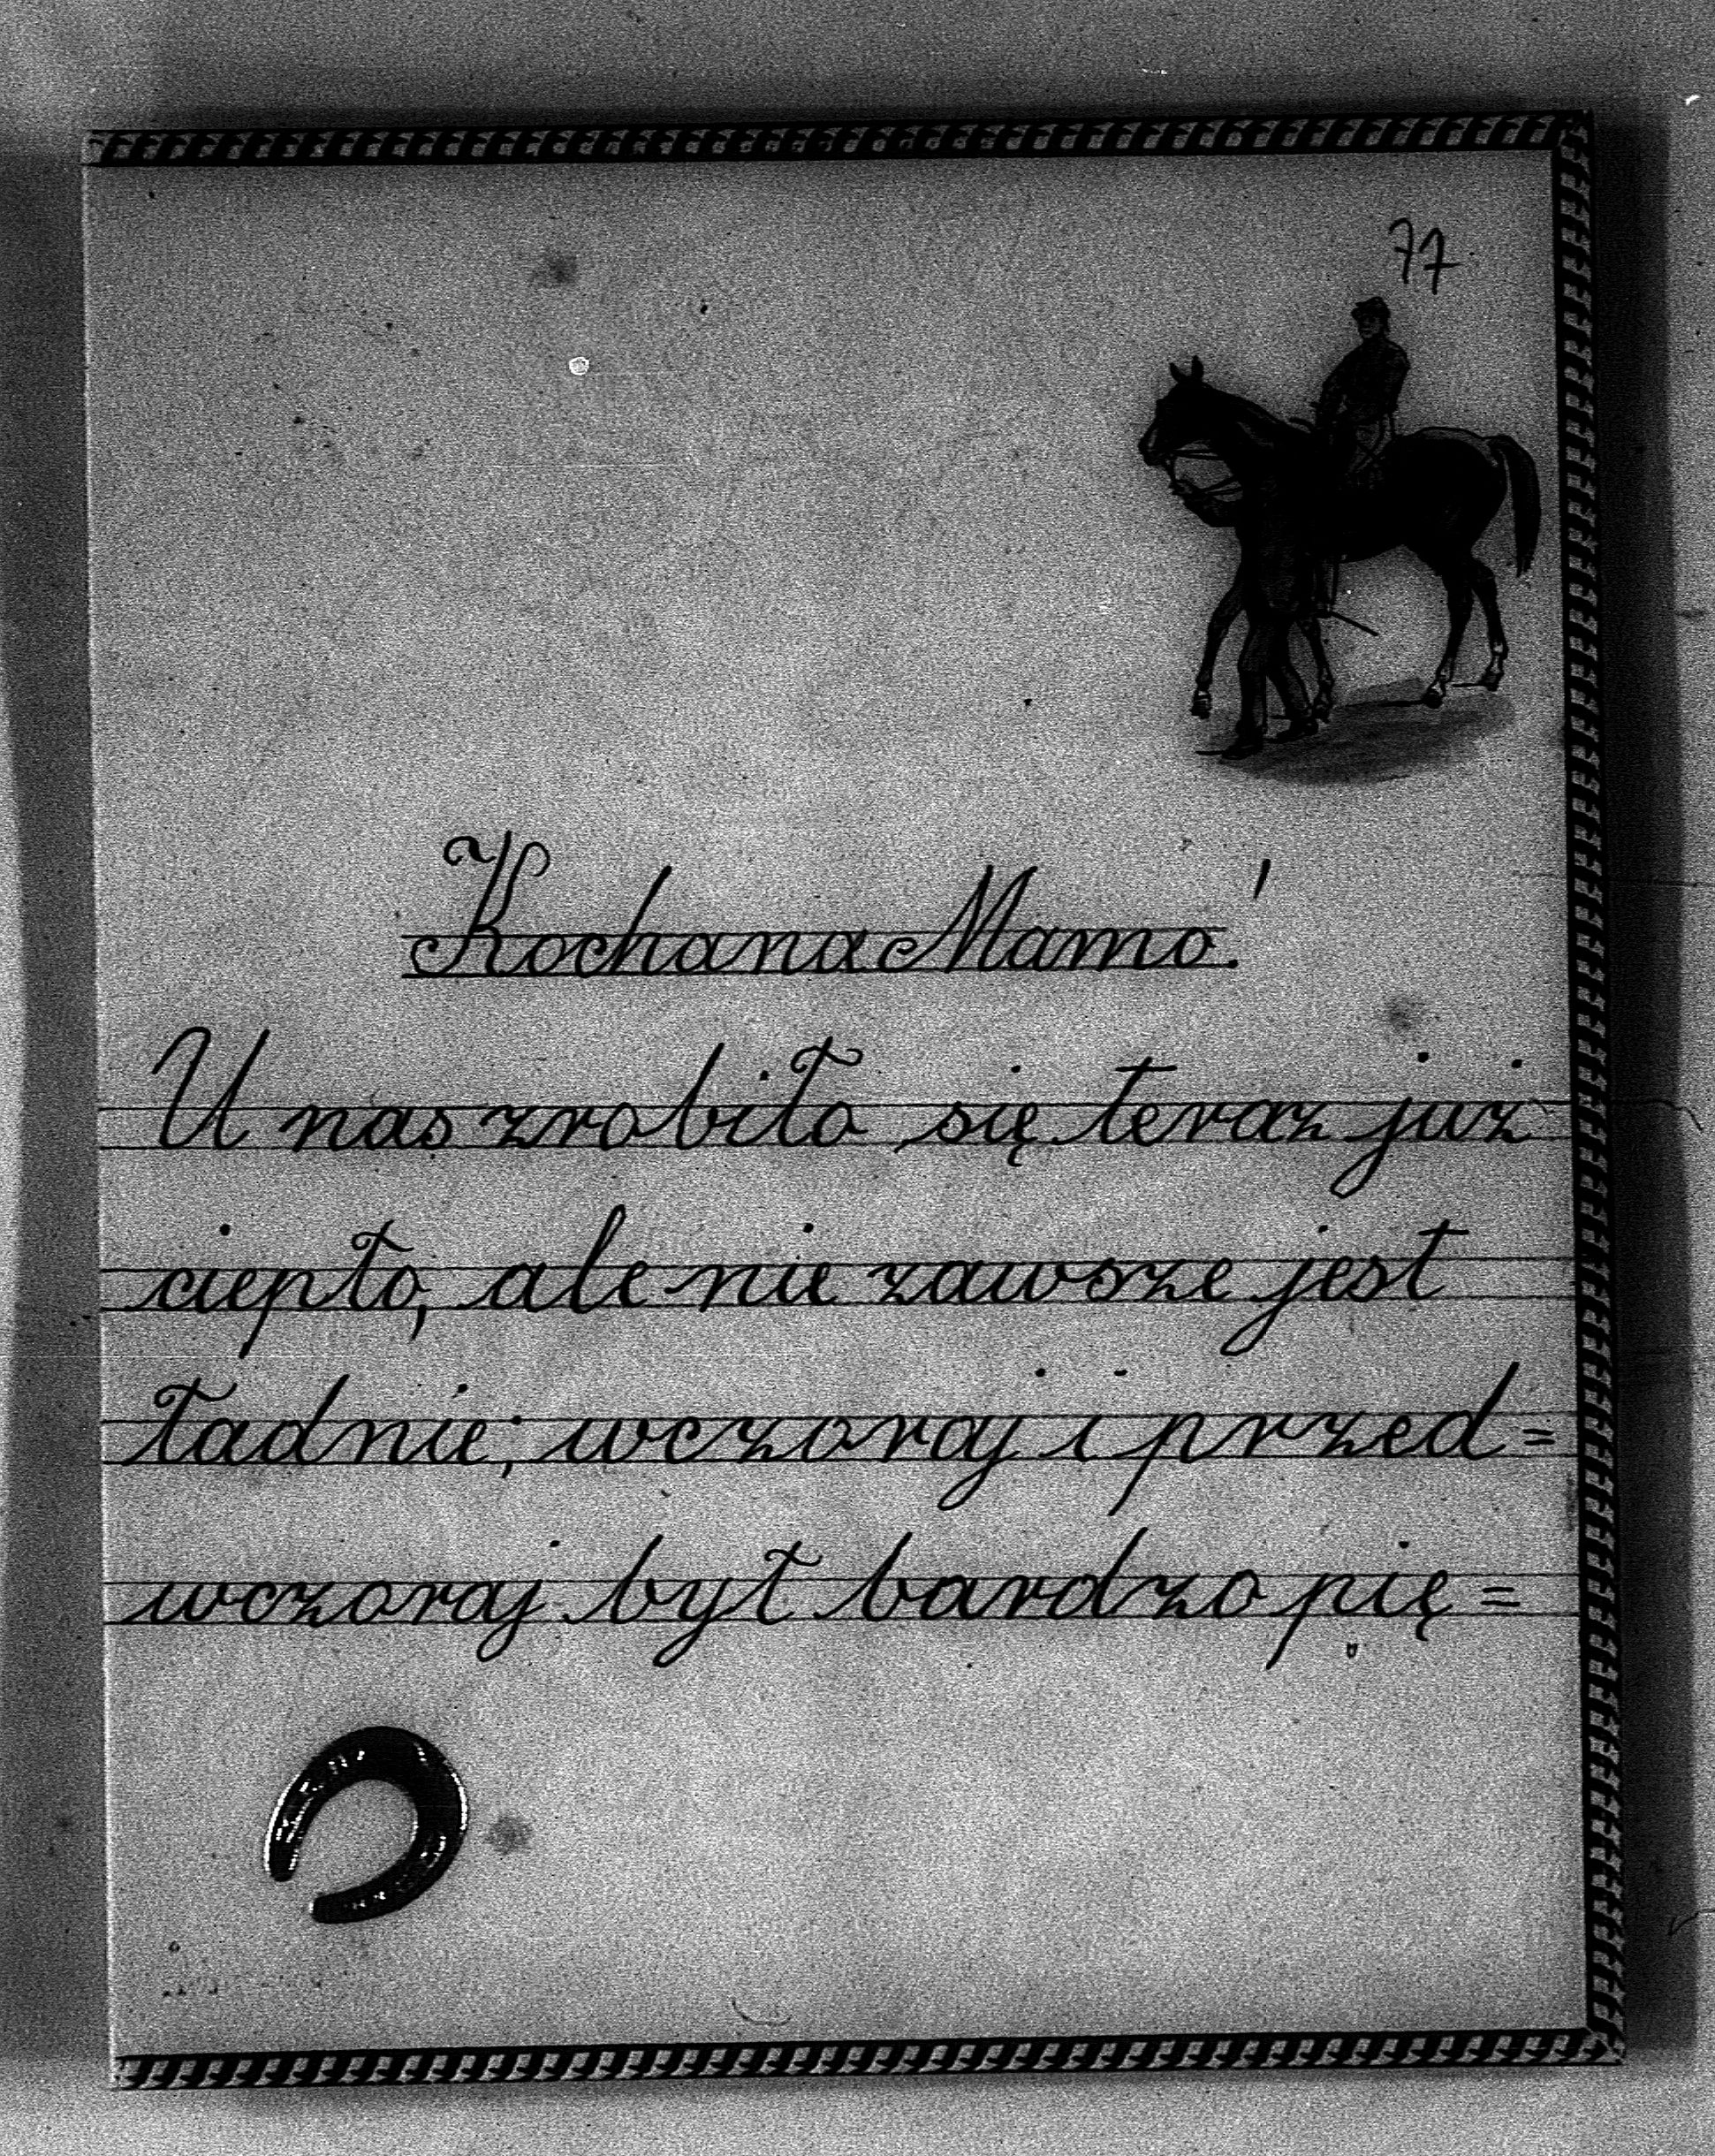 77
Kochana Mamo!
U nas zrobiło się teraz już
ciepło, ale nie zawsze jest
ładnie; wczoraj i przed=
wczoraj był bardzo pię=